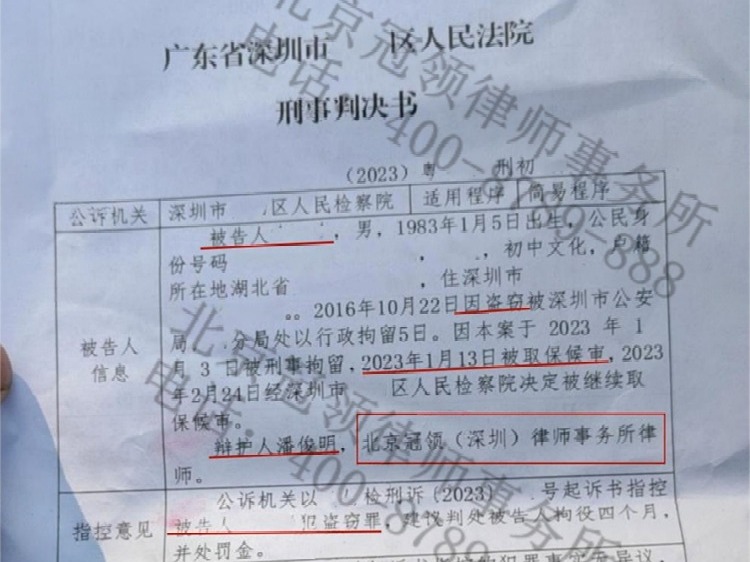 广东省深圳市 区人民法院
刑事判决书
(2023) 粤 刑初
公诉机关 深圳市 区人民检察院 适用程序 简易程序
被告人 ,男,1983年1月5日出生,公民身
份号码 , 初中文化,户籍
所在地湖北省 ,住深圳市
。。2016年10月22日因盗窃被深圳市公安
局 分局处以行政拘留5日。因本案于 2023 年 1
月 3 日被刑事拘留,2023年1月13日被取保候审,2023
年2月24日经深圳市 区人民检察院决定被继续取
保候审。
被告人
信息
辩护人潘俊明,北京冠领(深圳)律师事务所律
师。
公诉机关以 检刑诉(2023) 号起诉书指控
指控意见 被告人 犯盗窃罪,建议判处被告人拘役四个月,
并处罚金。
北京冠领律师事务所
电话:400-8789-888
北京冠领律师事务所
电话:400-8789